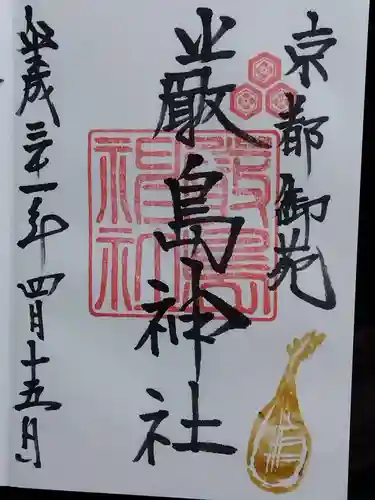 京都御苑
嚴島神社
平成三十一年四月十五日